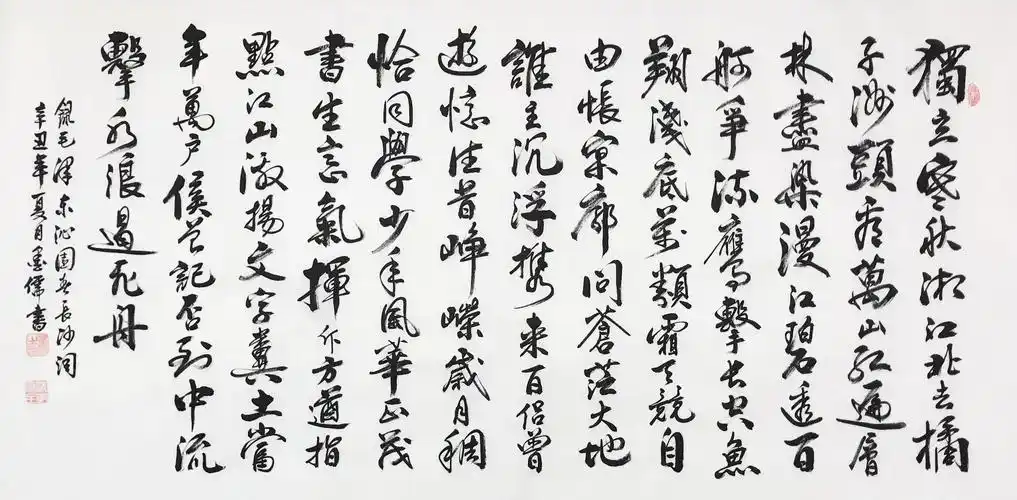 獨立寒秋湘江北去橘
子洲頭看萬山紅遍層
林盡染漫江碧透百
舸爭流鷹擊長空魚
翔淺底萬類霜天競自
由悵寥廓問蒼茫大地
誰主沉浮攜來百侶曾
遊憶往昔崢嶸歲月稠
恰同學少年風華正茂
書生意氣揮斥方遒指
點江山激揚文字糞土當
年萬戶侯曾記否到中流
擊水浪遏飛舟
錄毛澤東沁園春長沙詞
辛丑年夏月墨儒書